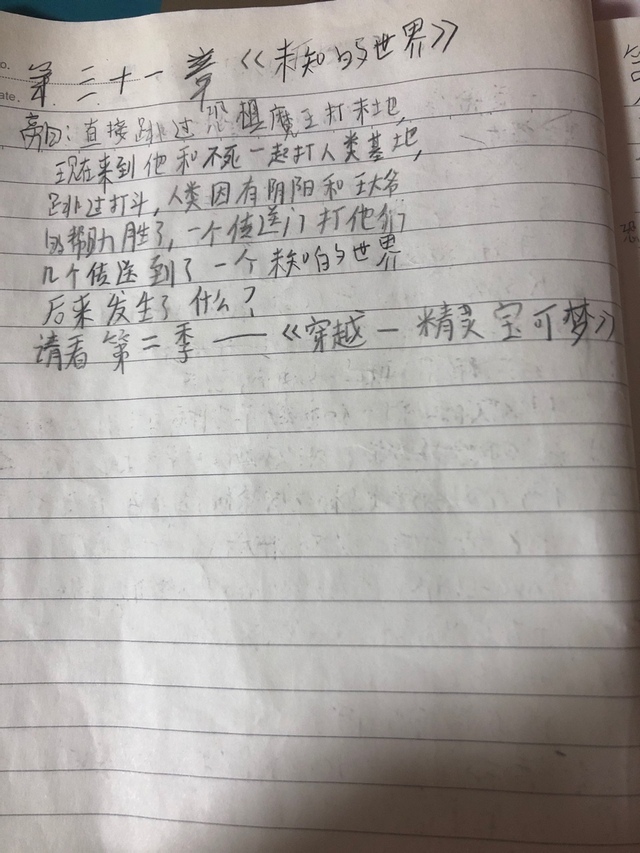 o.
ate.
第三十一章《未知的世界》
旁白:直接跳过恐惧魔王打末地,
现在来到他和不死一起打人类基地,
跳过打斗,人类因有阴阳和王大爷
的帮助力胜了,一个传送门打他们
几个传送到了一个未知的世界
后来发生了什么?
请看第二季——《穿越—精灵宝可梦》
恐